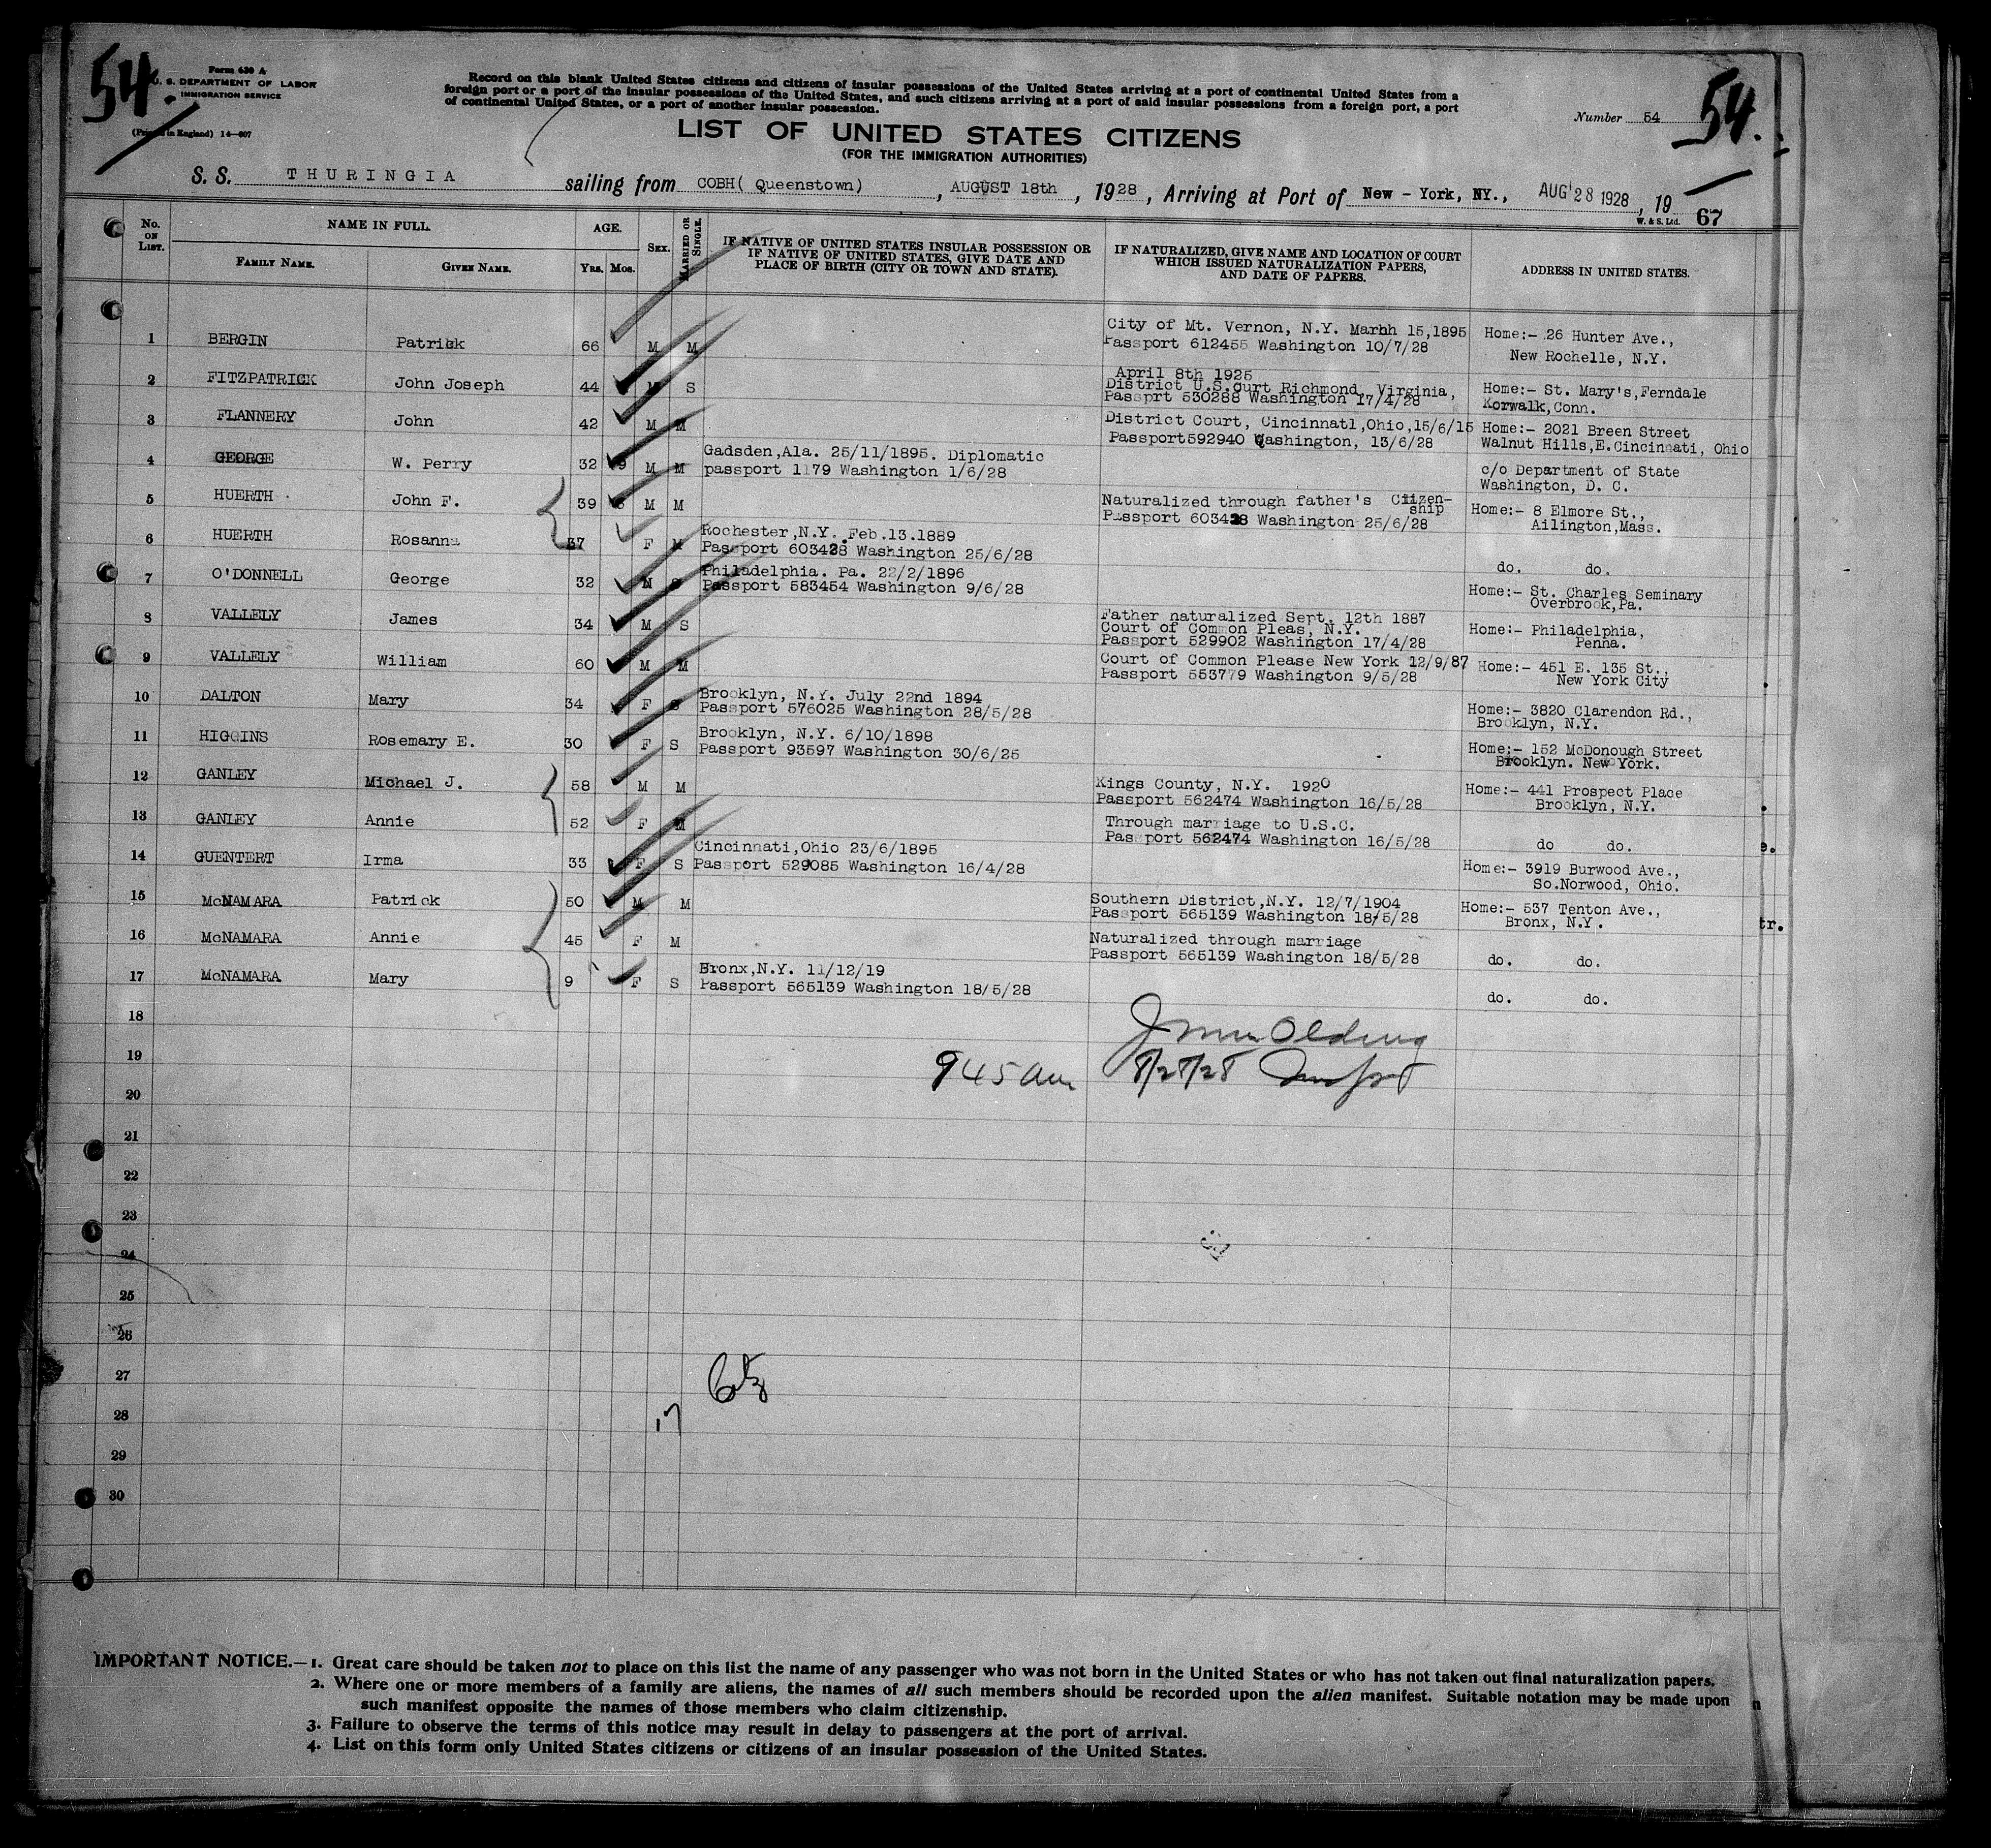 54.
Form 630 A
U. S. DEPARTMENT OF LABOR
IMMIGRATION SERVICE
(Printed in England) 14—607
Record on this blank United States citizens and citizens of insular possessions of the United States arriving at a port of continental United States from a
foreign port or a port of the insular possessions of the United States, and such citizens arriving at a port of said insular possessions from a foreign port, a port
of continental United States, or a port of another insular possession.
Number 54
54.
LIST OF UNITED STATES CITIZENS
(FOR THE IMMIGRATION AUTHORITIES)
S. S. THURINGIA sailing from COBH( Queenstown) , AUGUST 18th , 1928 , Arriving at Port of New - York, NY., AUG 28 1928 , 19
W. & S. Ltd. 67
No. ON LIST. NAME IN FULL. AGE. SEX. MARRIED OR SINGLE. IF NATIVE OF UNITED STATES INSULAR POSSESSION OR IF NATIVE OF UNITED STATES, GIVE DATE AND PLACE OF BIRTH (CITY OR TOWN AND STATE). IF NATURALIZED, GIVE NAME AND LOCATION OF COURT WHICH ISSUED NATURALIZATION PAPERS, AND DATE OF PAPERS. ADDRESS IN UNITED STATES.
FAMILY NAME. GIVEN NAME. YRS. MOS.
1 BERGIN Patrick 66 M M City of Mt. Vernon, N.Y. Marhh 15,1895 Home:- 26 Hunter Ave.,
Passport 612455 Washington 10/7/28 New Rochelle, N.Y.
April 8th 1925
2 FITZPATRICK John Joseph 44 M S District U.S.Curt Richmond, Virginia, Home:- St. Mary's,Ferndale
Passprt 530288 Washington 17/4/28 Korwalk,Conn.
3 FLANNERY John 42 M M District Court, Cincinnati,Ohio,15/6/15 Home:- 2021 Breen Street
Passport592940 Washington, 13/6/28 Walnut Hills,E.Cincinnati, Ohio
4 GEORGE W. Perry 32 9 M M Gadsden,Ala. 25/11/1895. Diplomatic c/o Department of State
passport 1179 Washington 1/6/28 Washington, D. C.
5 HUERTH John F. 39 M M Naturalized through father's Citizen-
ship
Passport 603428 Washington 25/6/28 Home:- 8 Elmore St.,
Ailington,Mass.
6 HUERTH Rosanna 37 F M Rochester,N.Y. Feb.13.1889
Passport 603428 Washington 25/6/28 do. do.
7 O'DONNELL George 32 M S Philadelphia. Pa. 22/2/1896
Passport 583454 Washington 9/6/28 Home:- St. Charles Seminary
Overbrook,Pa.
8 VALLELY James 34 M S Father naturalized Sept. 12th 1887
Court of Common Pleas, N.Y. Home:- Philadelphia,
Passport 529902 Washington 17/4/28 Penna.
9 VALLELY William 60 M M Court of Common Please New York 12/9/87 Home:- 451 E. 135 St.,
Passport 553779 Washington 9/5/28 New York City
10 DALTON Mary 34 F S Brooklyn, N.Y. July 22nd 1894
Passport 576025 Washington 28/5/28 Home:- 3820 Clarendon Rd.,
Brooklyn, N.Y.
11 HIGGINS Rosemary E. 30 F S Brooklyn, N.Y. 6/10/1898
Passport 93597 Washington 30/6/25 Home:- 152 McDonough Street
Brooklyn. New York.
12 GANLEY Michael J. 58 M M Kings County, N.Y. 1920 Home:- 441 Prospect Place
Passport 562474 Washington 16/5/28 Brooklyn, N.Y.
13 GANLEY Annie 52 F M Through marriage to U.S.C.
Passport 562474 Washington 16/5/28 do do.
14 GUENTERT Irma 33 F S Cincinnati,Ohio 23/6/1895
Passport 529085 Washington 16/4/28 Home:- 3919 Burwood Ave.,
So.Norwood, Ohio.
15 McNAMARA Patrick 50 M M Southern District,N.Y. 12/7/1904 Home:- 537 Tenton Ave.,
Passport 565139 Washington 18/5/28 Bronx, N.Y.
16 McNAMARA Annie 45 F M Naturalized through marriage
Passport 565139 Washington 18/5/28 do. do.
17 McNAMARA Mary 9 F S Bronx,N.Y. 11/12/19
Passport 565139 Washington 18/5/28 do. do.
18
19
945 am 8/28/28
20
21
22
23
24
25
26
27
28
17
29
30
IMPORTANT NOTICE.—1. Great care should be taken not to place on this list the name of any passenger who was not born in the United States or who has not taken out final naturalization papers.
2. Where one or more members of a family are aliens, the names of all such members should be recorded upon the alien manifest. Suitable notation may be made upon
such manifest opposite the names of those members who claim citizenship.
3. Failure to observe the terms of this notice may result in delay to passengers at the port of arrival.
4. List on this form only United States citizens or citizens of an insular possession of the United States.